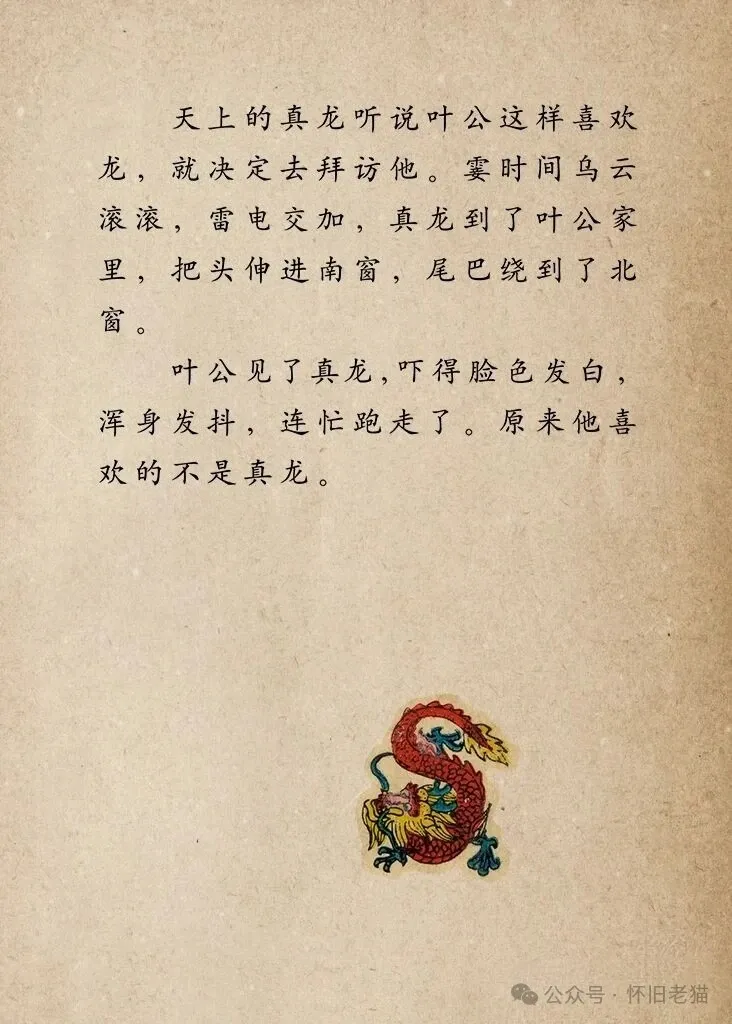 天上的真龙听说叶公这样喜欢
龙，就决定去拜访他。霎时间乌云
滚滚，雷电交加，真龙到了叶公家
里，把头伸进南窗，尾巴绕到了北
窗。
叶公见了真龙,吓得脸色发白，
浑身发抖，连忙跑走了。原来他喜
欢的不是真龙。
公众号·怀旧老猫